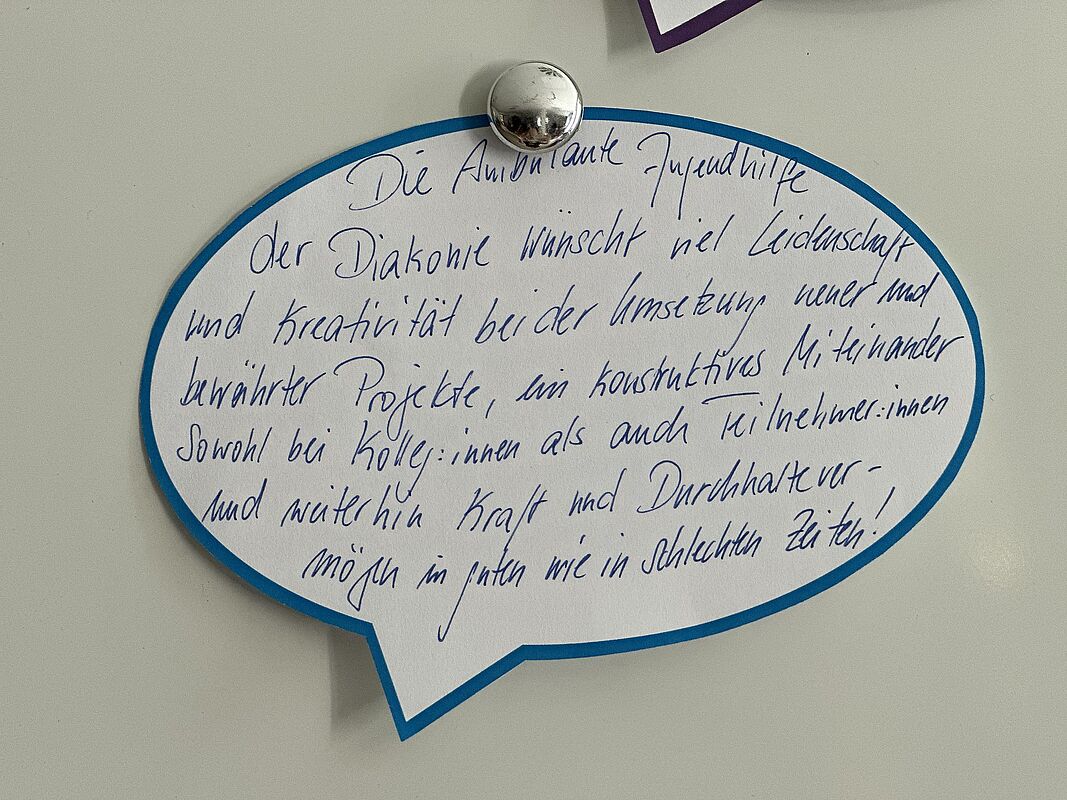 Die Ambulante Jugendhilfe
der Diakonie wünscht viel Leidenschaft
und Kreativität bei der Umsetzung neuer und
bewährter Projekte, ein konstruktives Miteinander
sowohl bei Kolleg:innen als auch Teilnehmer:innen
und weiterhin Kraft und Durchhaltever-
mögen in guten wie in schlechten Zeiten!